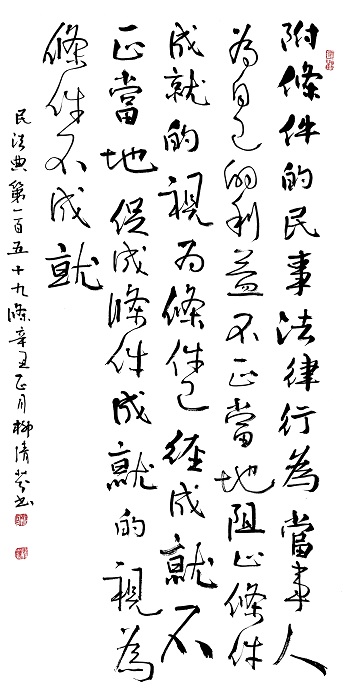 附條件的民事法律行為當事人
為自己的利益不正當地阻止條件
成就的視為條件已經成就不
正當地促成條件成就的視為
條件不成就
民法典第一百五十九條辛丑正月柳清芬书